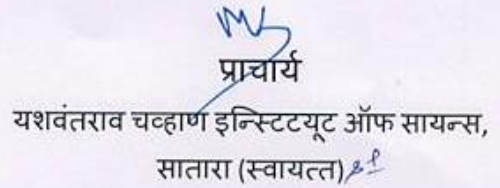 प्राचार्य
यशवंतराव चव्हाण इन्स्टिटयूट ऑफ सायन्स,
सातारा (स्वायत्त)